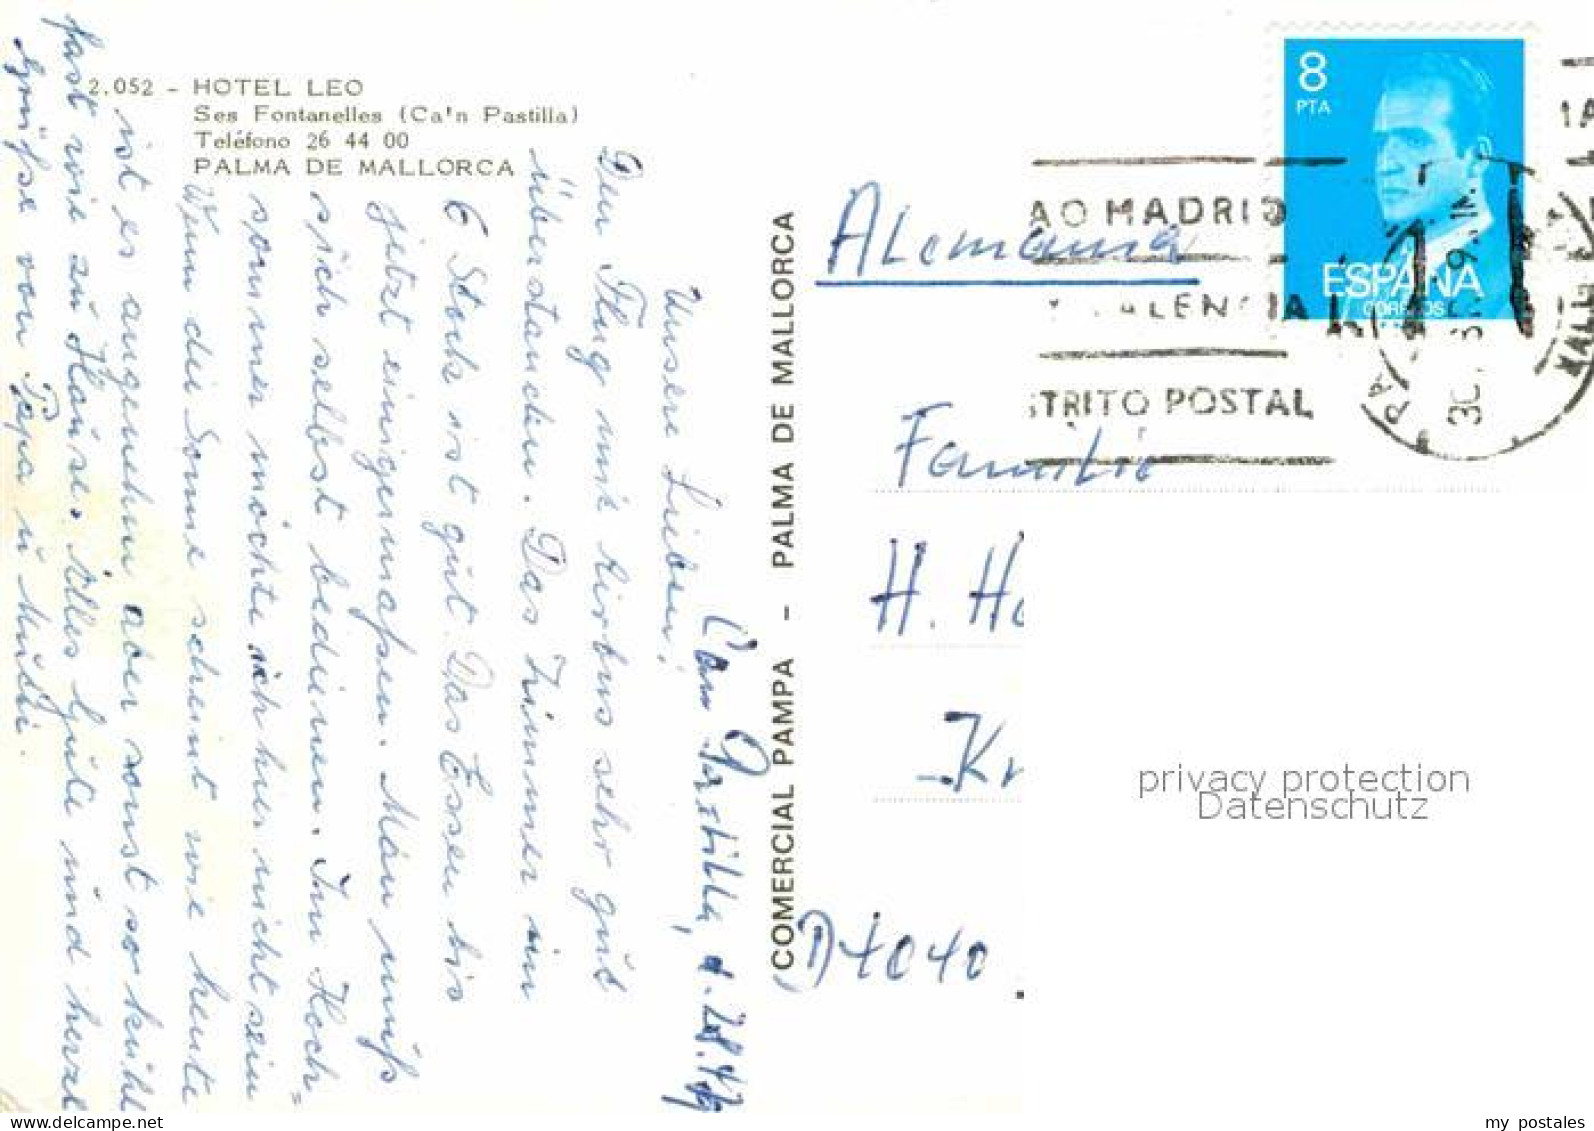 2.052 - HOTEL LEO
Ses Fontanelles (Ca'n Pastilla)
Teléfono 26 44 00
PALMA DE MALLORCA
Can Pastilla, d. 28.
Unsere Lieben!
Den Flug mit Airbus sehr gut
überstanden. Das Zimmer im
6 Stock ist gut. Das Essen bis
jetzt einigermaßen. Man muß
sich selbst bedienen. Im Hoch=
sommer möchte ich hier nicht sein
Wenn die Sonne scheint wie heute
ist es angenehm aber sonst so kühl
fast wie zu Hause. Alles Gute und herzl
Grüße von Papa u Mutti.
COMERCIAL PAMPA - PALMA DE MALLORCA
8
PTA
ESPAÑA
CORREOS
AO MADRID
ALENCIA
TRITO POSTAL
Alemania
Familie
H. Ha
Kr
D 4040
privacy protection
Datenschutz
my postales